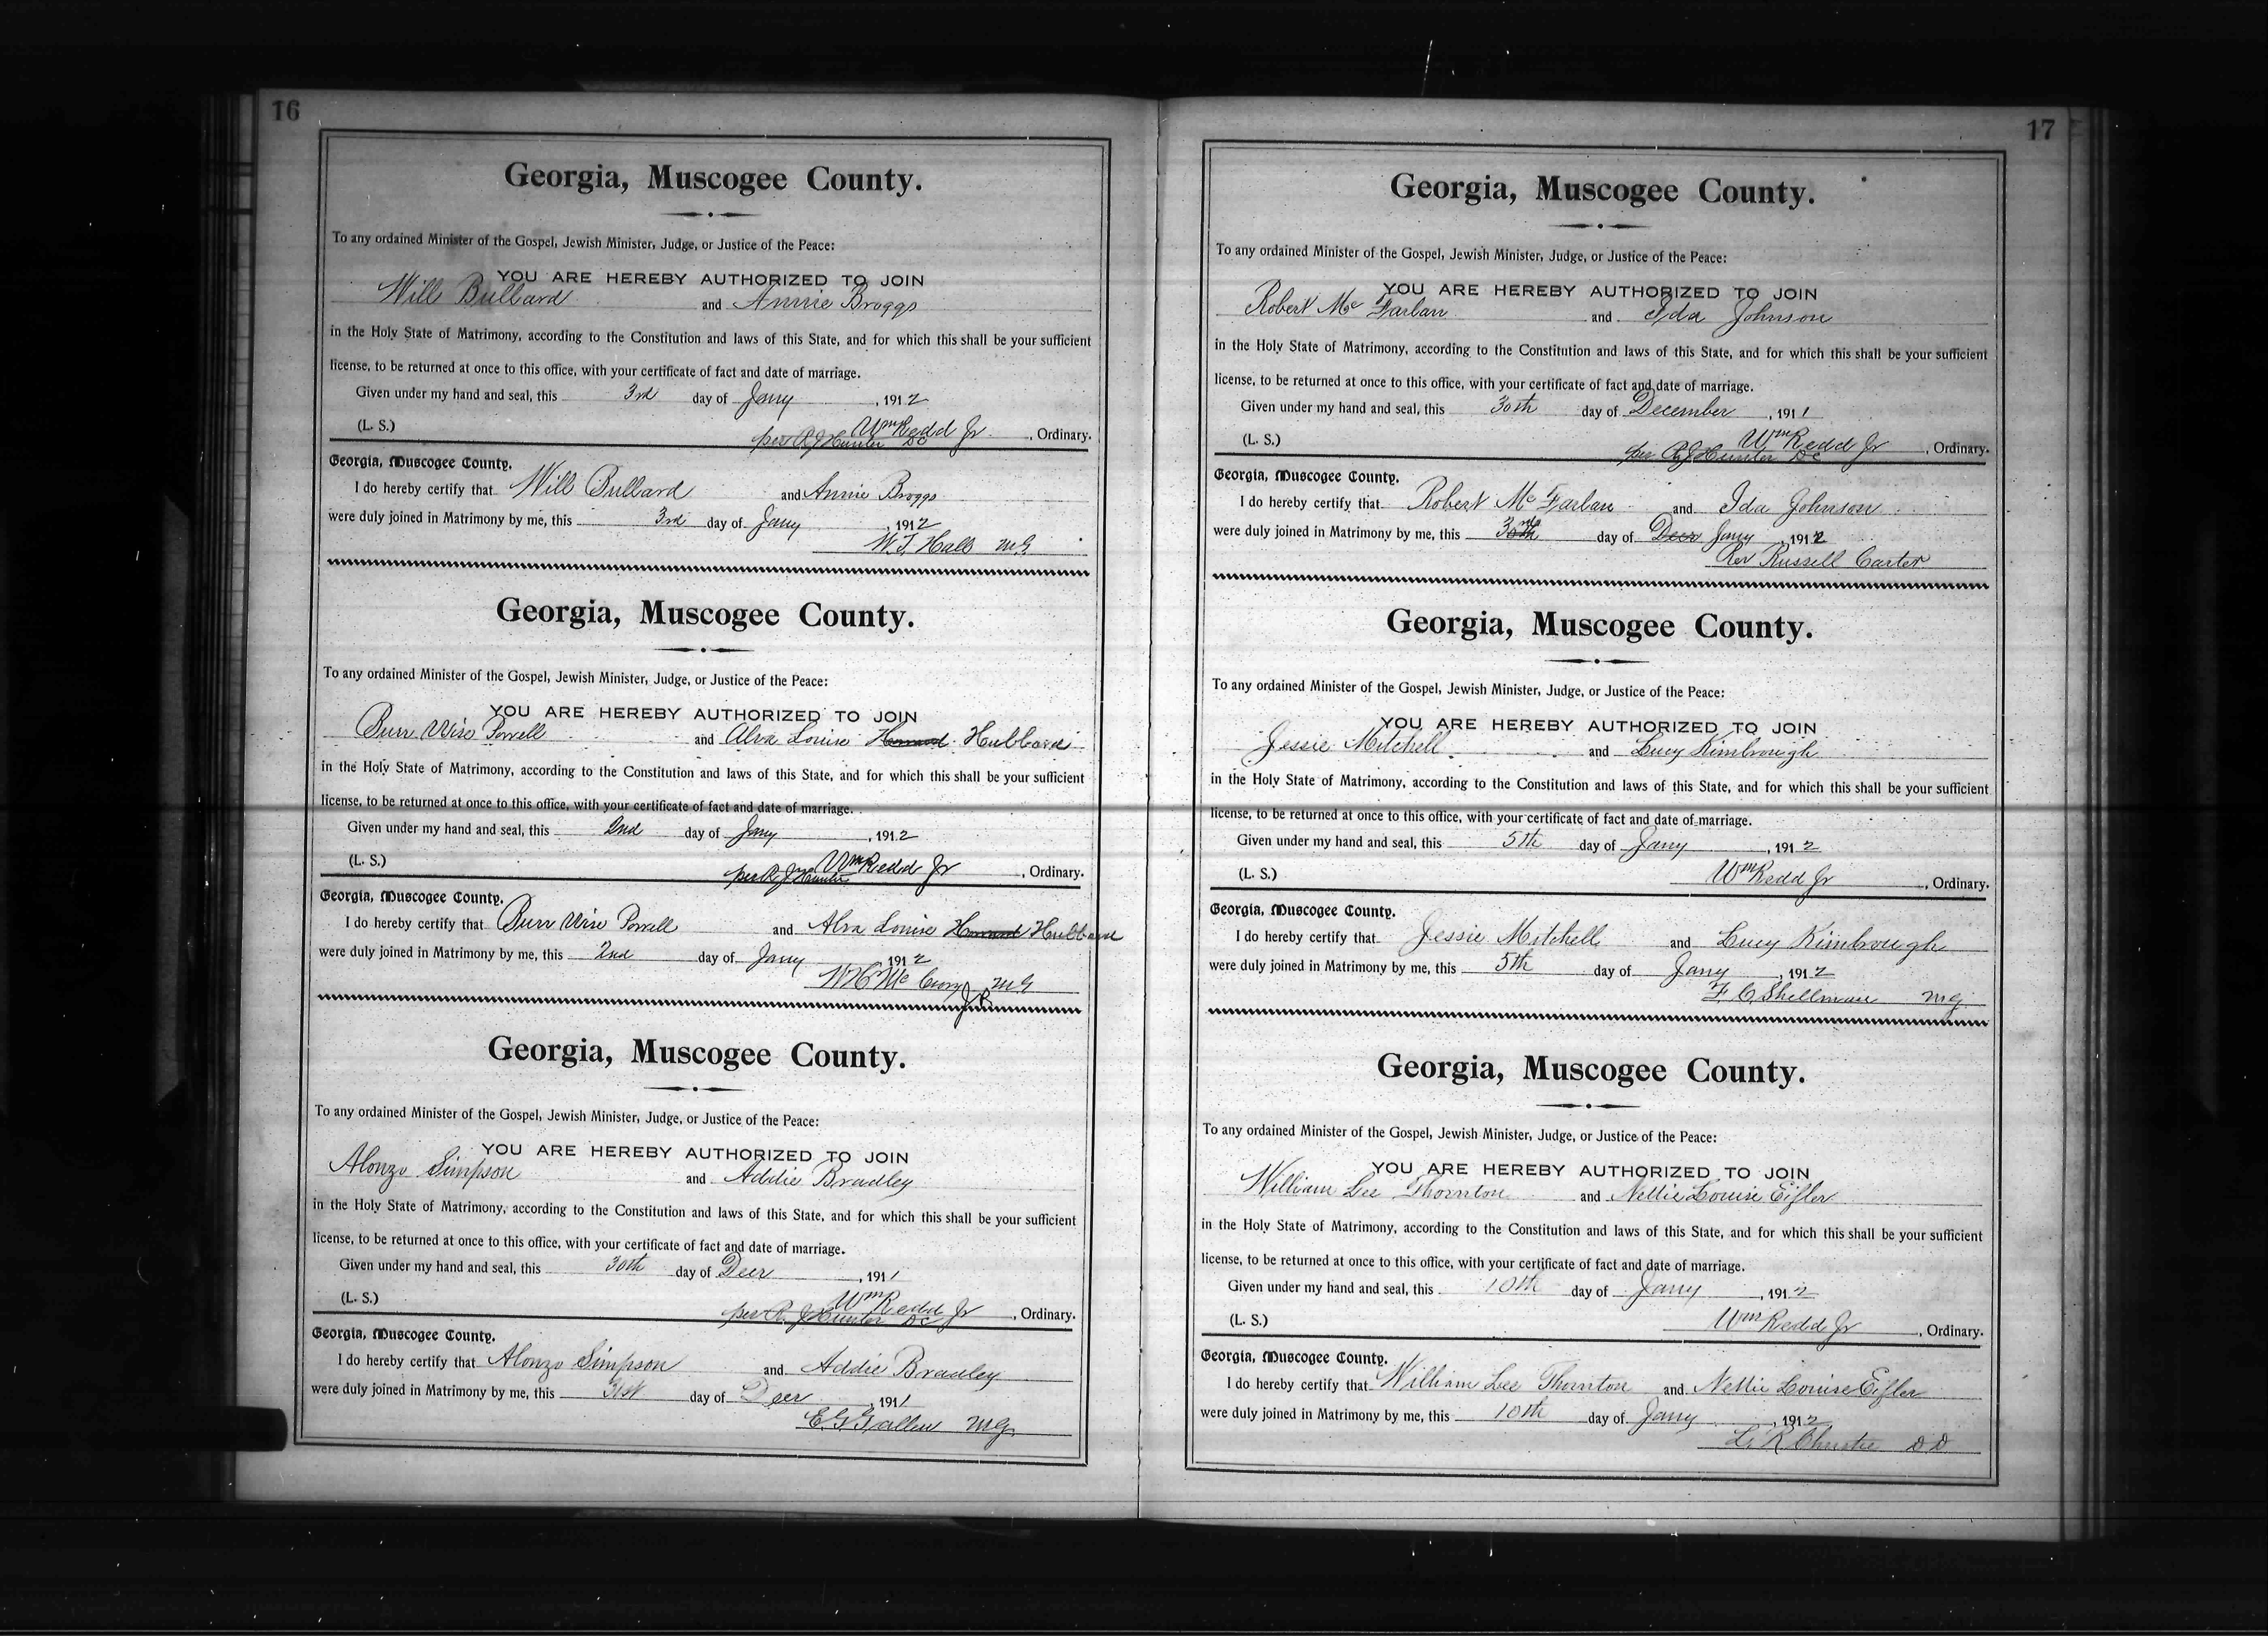 16
Georgia, Muscogee County.
To any ordained Minister of the Gospel, Jewish Minister, Judge, or Justice of the Peace:
YOU ARE HEREBY AUTHORIZED TO JOIN
Will Bullard and Annie Broggs
in the Holy State of Matrimony, according to the Constitution and laws of this State, and for which this shall be your sufficient
license, to be returned at once to this office, with your certificate of fact and date of marriage.
Given under my hand and seal, this 3rd day of Jany, 1912
(L. S.) Wm Redd Jr, Ordinary.
per R J Hunter DC
Georgia, Muscogee County.
I do hereby certify that Will Bullard and Annie Broggs
were duly joined in Matrimony by me, this 3rd day of Jany, 1912
W. T. Hall MG
Georgia, Muscogee County.
To any ordained Minister of the Gospel, Jewish Minister, Judge, or Justice of the Peace:
YOU ARE HEREBY AUTHORIZED TO JOIN
Burr Wise Powell and Alva Louise Hubbard
in the Holy State of Matrimony, according to the Constitution and laws of this State, and for which this shall be your sufficient
license, to be returned at once to this office, with your certificate of fact and date of marriage.
Given under my hand and seal, this 2nd day of Jany, 1912
(L. S.) Wm Redd Jr, Ordinary.
per R J Hunter
Georgia, Muscogee County.
I do hereby certify that Burr Wise Powell and Alva Louise Hubbard
were duly joined in Matrimony by me, this 2nd day of Jany 1912
W H Mc MG
Georgia, Muscogee County.
To any ordained Minister of the Gospel, Jewish Minister, Judge, or Justice of the Peace:
YOU ARE HEREBY AUTHORIZED TO JOIN
Alonzo Simpson and Addie Bradley
in the Holy State of Matrimony, according to the Constitution and laws of this State, and for which this shall be your sufficient
license, to be returned at once to this office, with your certificate of fact and date of marriage.
Given under my hand and seal, this 30th day of Decr, 1911
(L. S.) Wm Redd Jr, Ordinary.
per R. J Hunter DC
Georgia, Muscogee County.
I do hereby certify that Alonzo Simpson and Addie Bradley
were duly joined in Matrimony by me, this 31st day of Decr, 1911
E. G. MG.
17
Georgia, Muscogee County.
To any ordained Minister of the Gospel, Jewish Minister, Judge, or Justice of the Peace:
YOU ARE HEREBY AUTHORIZED TO JOIN
Robert Mc Farlan and Ida Johnson
in the Holy State of Matrimony, according to the Constitution and laws of this State, and for which this shall be your sufficient
license, to be returned at once to this office, with your certificate of fact and date of marriage.
Given under my hand and seal, this 30th day of December, 1911
(L. S.) Wm Redd Jr, Ordinary.
per R J Hunter DC
Georgia, Muscogee County.
I do hereby certify that Robert Mc Farlan and Ida Johnson
were duly joined in Matrimony by me, this day of Decr Jany, 1912
Rev Russell Carter
Georgia, Muscogee County.
To any ordained Minister of the Gospel, Jewish Minister, Judge, or Justice of the Peace:
YOU ARE HEREBY AUTHORIZED TO JOIN
Jessie Mitchell and Lucy Kimbrough
in the Holy State of Matrimony, according to the Constitution and laws of this State, and for which this shall be your sufficient
license, to be returned at once to this office, with your certificate of fact and date of marriage.
Given under my hand and seal, this 5th day of Jany, 1912
(L. S.) Wm Redd Jr, Ordinary.
Georgia, Muscogee County.
I do hereby certify that Jessie Mitchell and Lucy Kimbrough
were duly joined in Matrimony by me, this 5th day of Jany, 1912
F. C. Shellman MG
Georgia, Muscogee County.
To any ordained Minister of the Gospel, Jewish Minister, Judge, or Justice of the Peace:
YOU ARE HEREBY AUTHORIZED TO JOIN
William Lee Thornton and Nellie Louise Eifler
in the Holy State of Matrimony, according to the Constitution and laws of this State, and for which this shall be your sufficient
license, to be returned at once to this office, with your certificate of fact and date of marriage.
Given under my hand and seal, this 10th day of Jany, 1912
(L. S.) Wm Redd Jr, Ordinary.
Georgia, Muscogee County.
I do hereby certify that William Lee Thornton and Nellie Louise Eifler
were duly joined in Matrimony by me, this 10th day of Jany, 1912
L. R. Christie D D